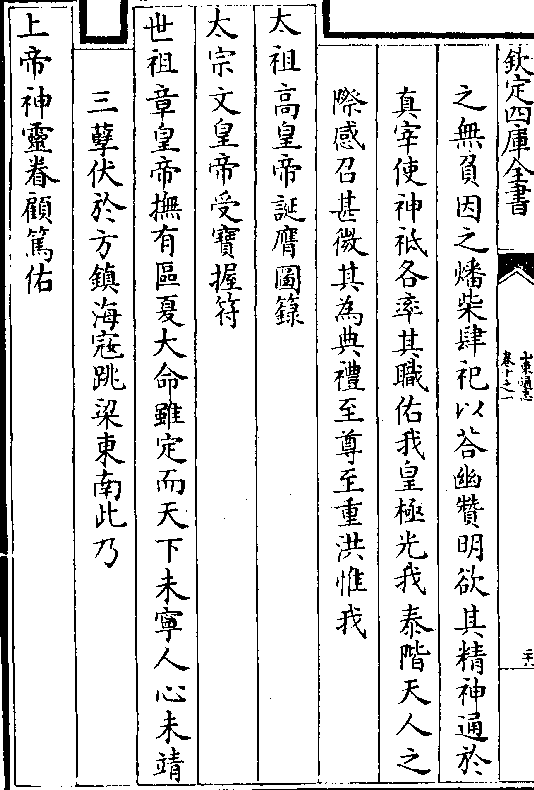 欽定四庫全書
山東通志
卷十之一
之無負因之燔柴肆祀以荅幽贊明欲其精神通於
真宰使神祇各率其職佑我皇極光我泰階天人之
際感召甚微其為典禮至尊至重洪惟我
太祖高皇帝誕膺圖籙
太宗文皇帝受寶握符
世祖章皇帝撫有區夏大命雖定而天下未寧人心未靖
三孽伏於方鎮海寇跳梁東南此乃
上帝神靈眷顧篤佑